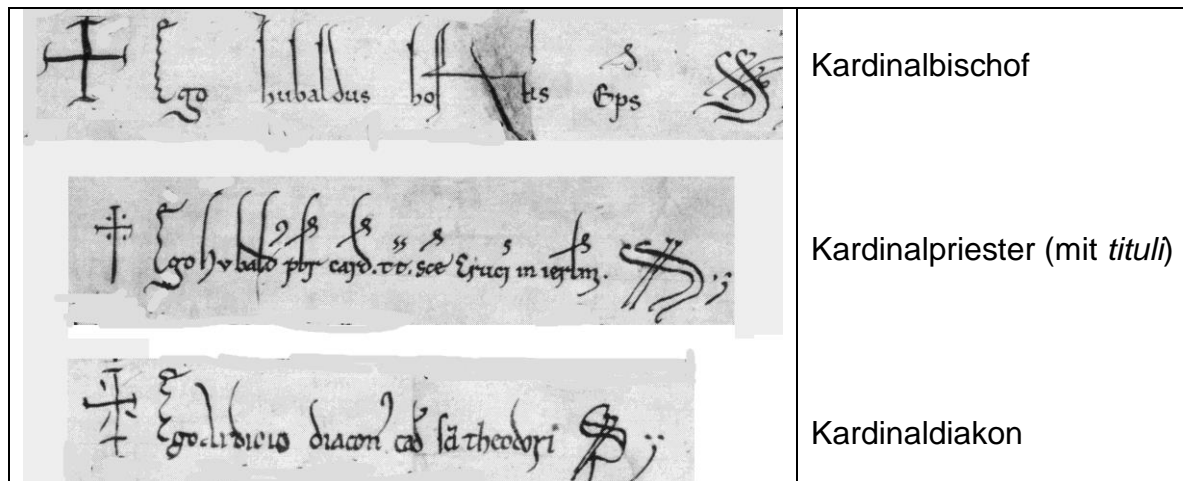 Ego hubaldus hostis Eps
Kardinalbischof
Ego hubald pbr card. tt. sce Cruci in ierlm.
Kardinalpriester (mit tituli)
Ego diacon card sci theodori
Kardinaldiakon